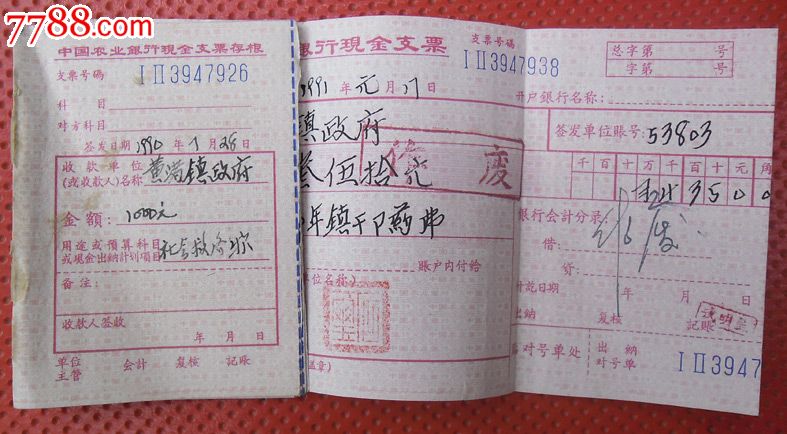 7788.com
中国收藏热线
中国农业银行現金支票存根
支票号碼
I II 3947926
科目
对方科目
签发日期 1990 年 月 26 日
收款单位
(或收款人)名称
黄湾镇政府
金額:
1000元
用途或預算科目
或現金出納計划項目
社会救济
备注:
收款人签收
年 月 日
单位
主管
会計
复核
記账
銀行現金支票
支票号碼
I II 3947938
1991 年 元 月 17 日
镇政府
叁伍拾元
年镇干 药费
账户内付給
单位名称)
盖章)
废
总字第 号
字第 号
开户銀行名称:
签发单位账号:
53803
千 百 十 万 千 百 十 元 角
3 5 0 0 0
銀行会計分录
借:
貸:
付訖日期
年 月 日
出納
复核
記账
对号单处
出納
对号单
I II 3947